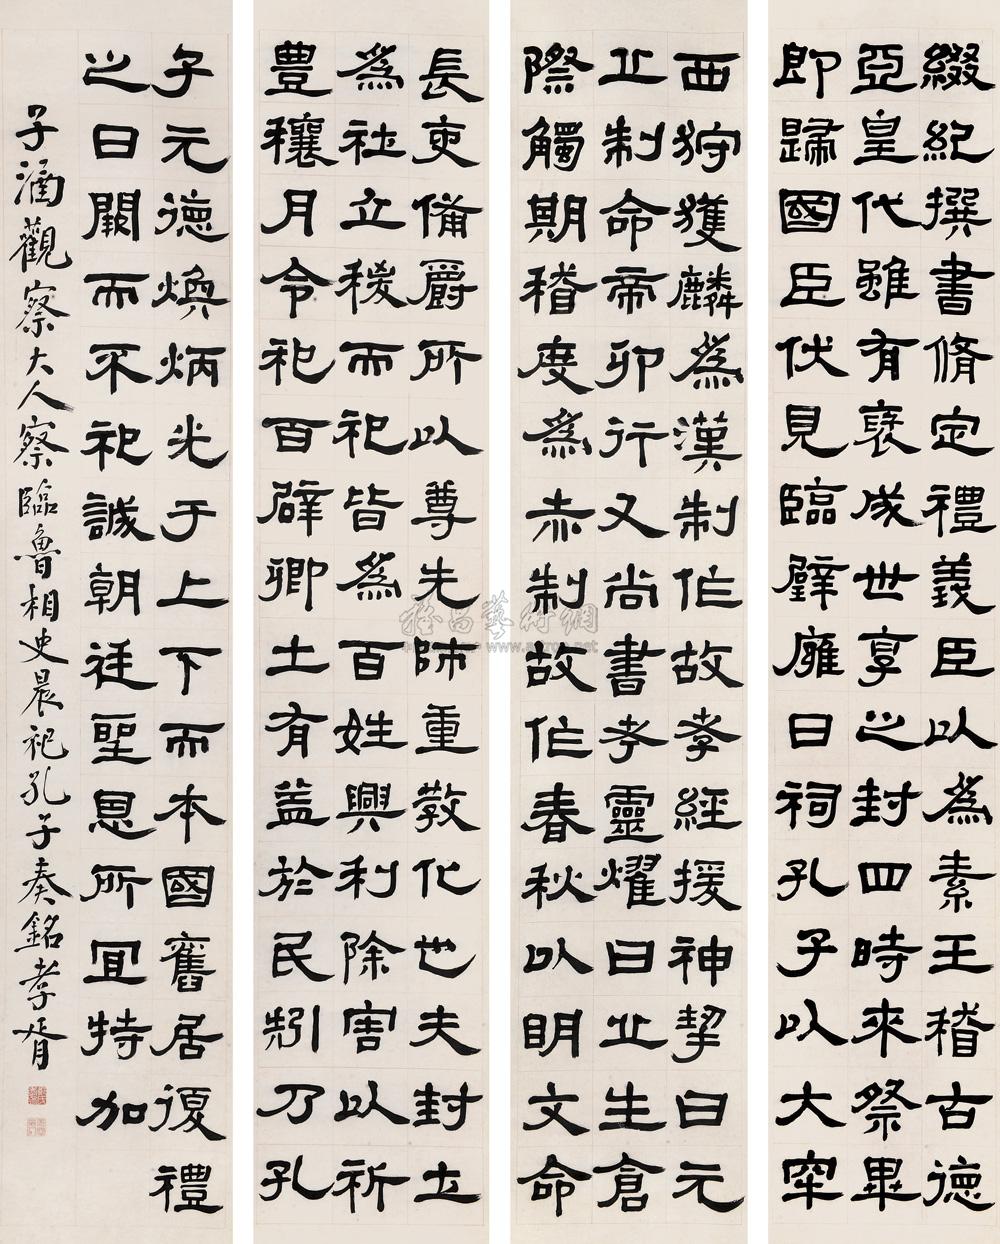 綴紀撰書脩定禮義臣以為素王稽古德
亞皇代雖有褒成世享之封四時來祭畢
即歸國臣伏見臨璧廱日祠孔子以大牢
西狩獲麟為漢制作故孝經援神挈曰元
丘制命帝卯行又尚書考靈耀曰丘生倉
際觸期稽度為赤制故作春秋以明文命
長吏備爵所以尊先師重教化也夫封土
為社立稷而祀皆為百姓興利除害以祈
豊穰月令祀百辟卿士有益於民矧乃孔
子元德煥炳光于上下而本國舊居復禮
之日闕而不祀誠朝廷聖恩所宜特加
子涵觀察大人察臨魯相史晨祀孔子奏銘孝胥
雅昌藝術網
www.artron.net